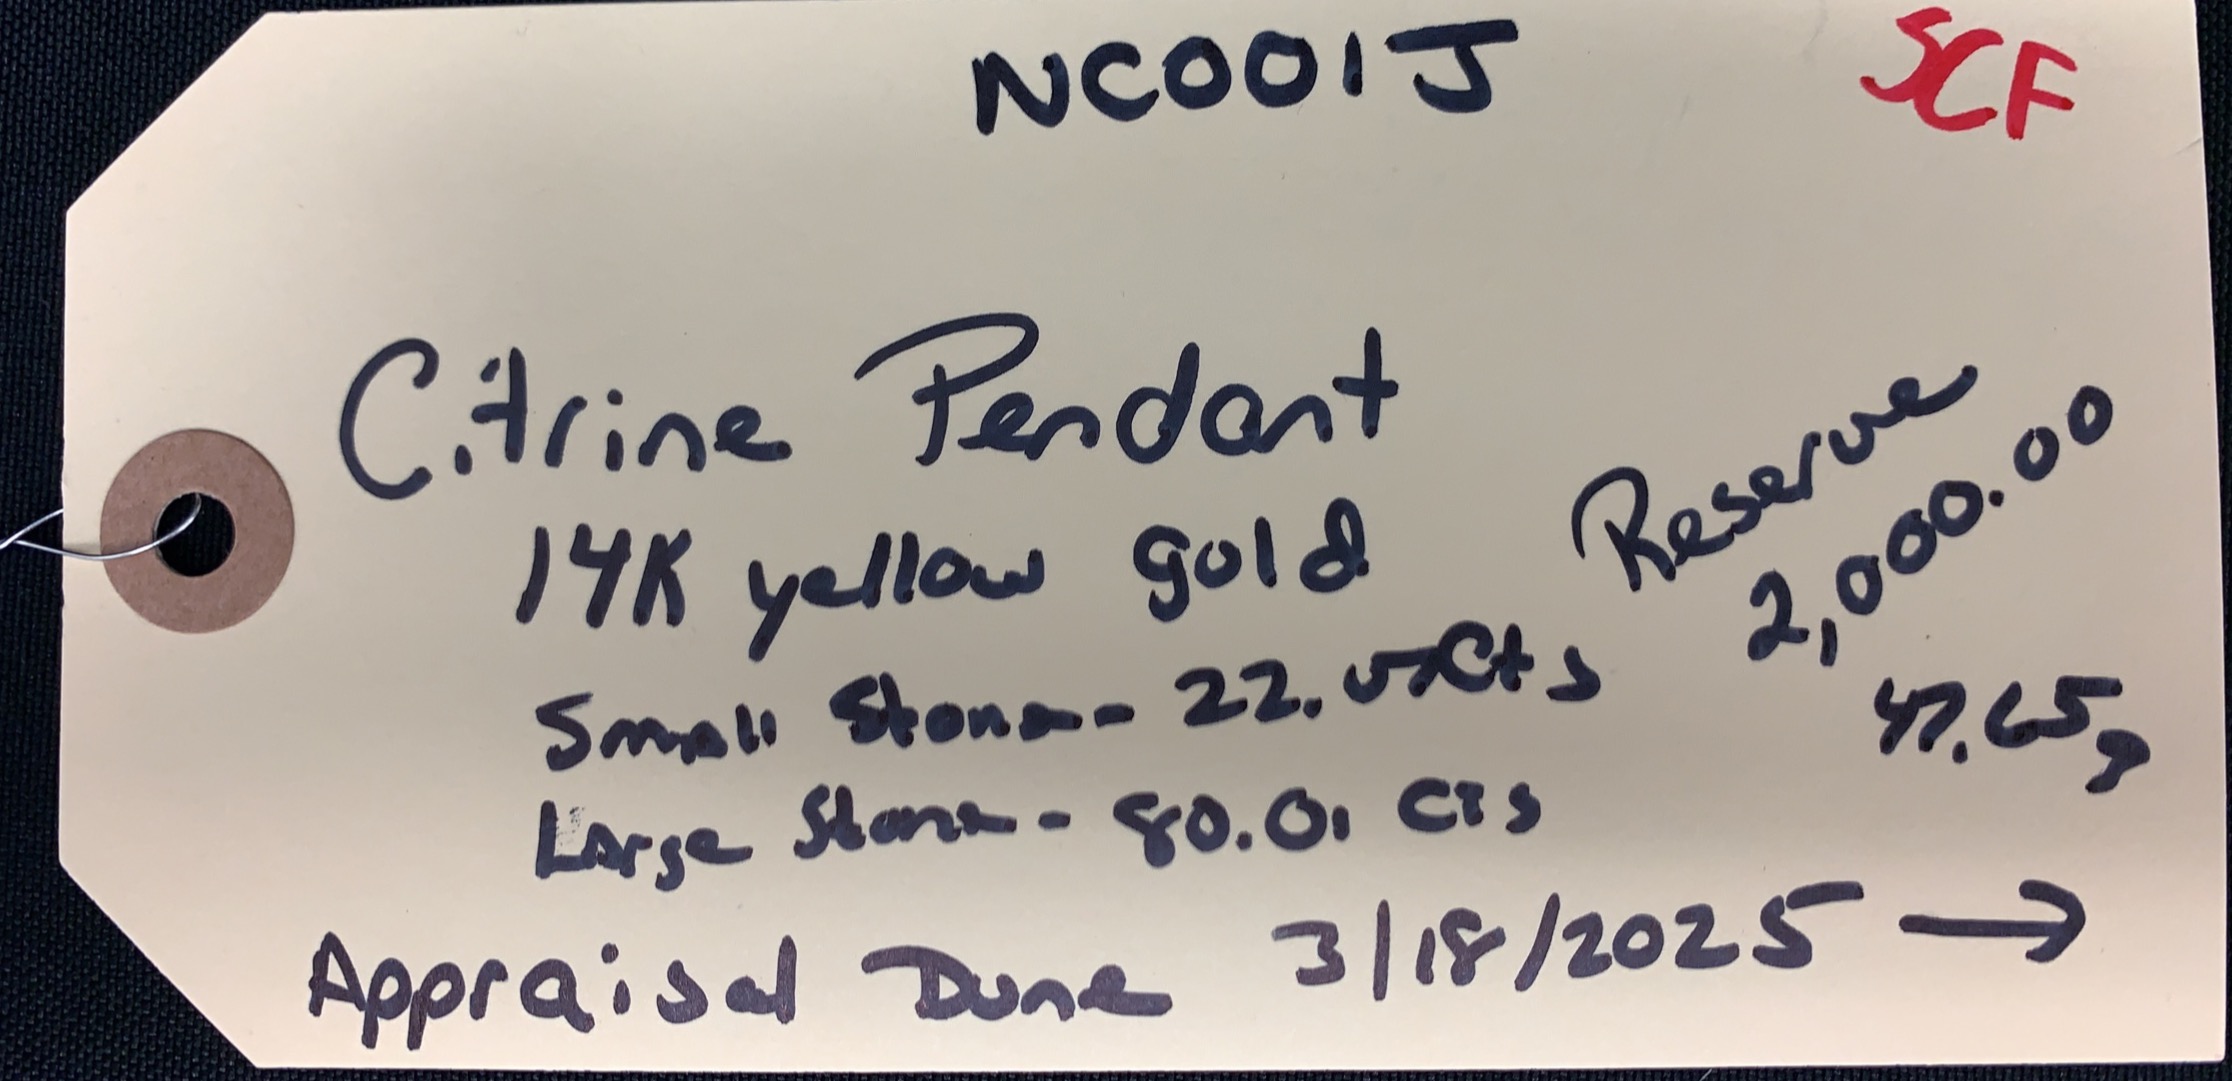 NC001J
SCF
Citrine Pendant
14K yellow gold
Reserve
2,000.00
47.65g
Small Stone - 22. Cts
Large Stone - 80.01 cts
Appraisal Done 3/18/2025 →